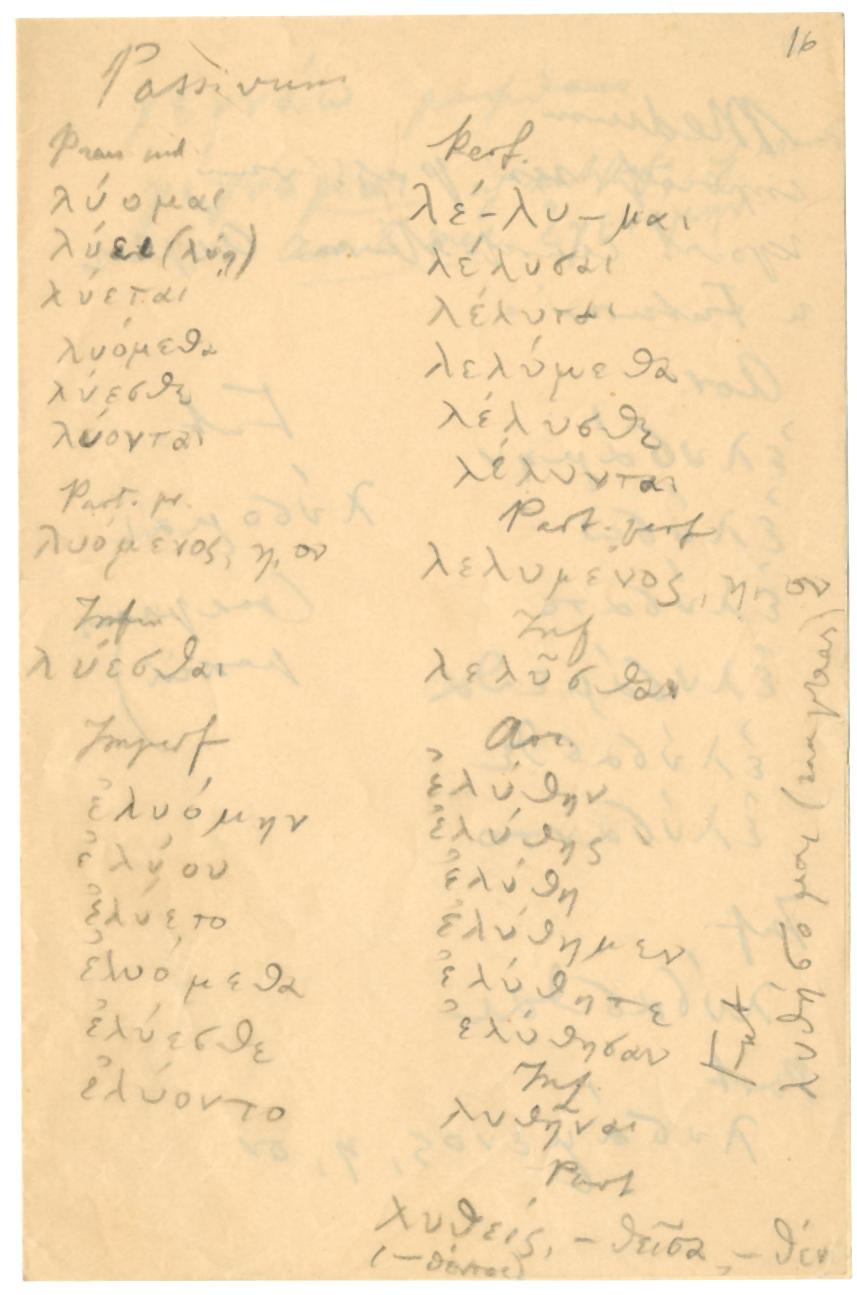 16
Passivum
Praes ind.
λύομαι
λύει (λύῃ)
λύεται
λυόμεθα
λύεσθε
λύονται
Part. pr.
λυόμενος, η, ον
Infin
λύεσθαι
Imperf
ἐλυόμην
ἐλύου
ἐλύετο
ἐλυόμεθα
ἐλύεσθε
ἐλύοντο
Perf.
λέ-λυ-μαι
λέλυσαι
λέλυται
λελύμεθα
λέλυσθε
λέλυνται
Part. perf
λελυμένος, η, ον
Inf
λελῦσθαι
Aor.
ἐλύθην
ἐλύθης
ἐλύθη
ἐλύθημεν
ἐλύθητε
ἐλύθησαν
Inf.
λυθῆναι
Part
λυθείς, -θεῖσα, -θέν
(-θέντος)
Fut
λυθήσομαι